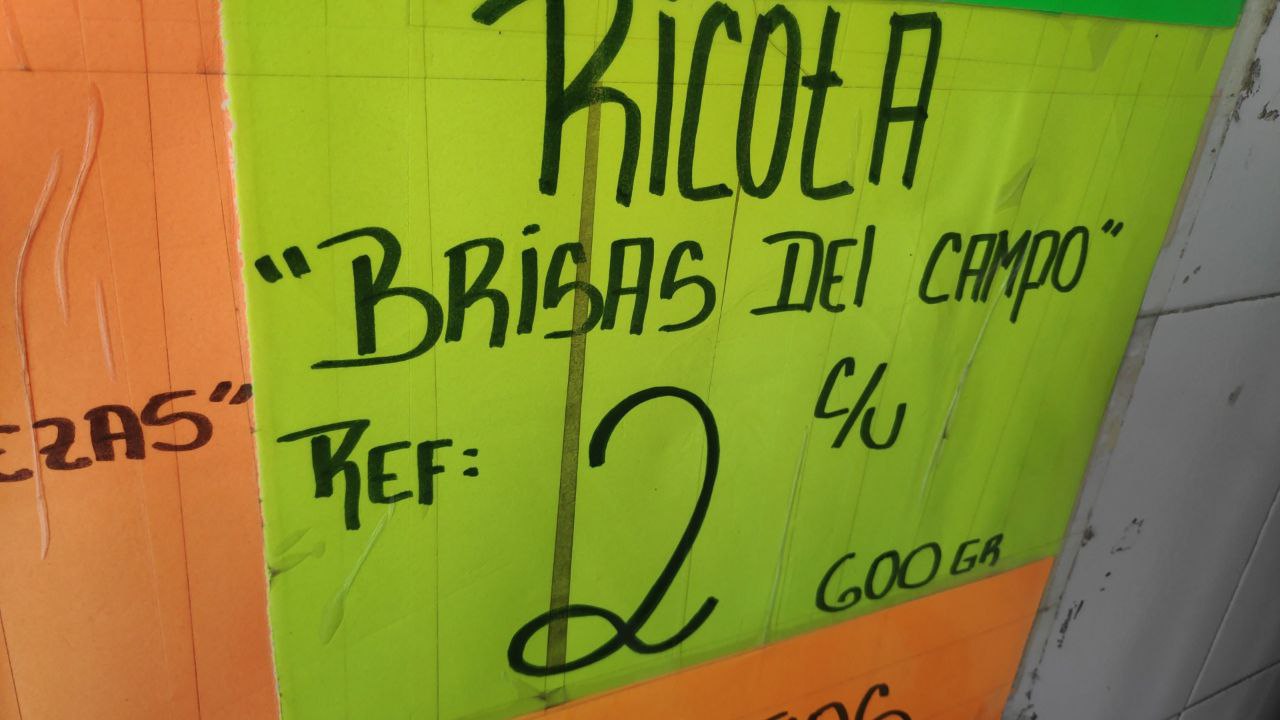 RICOtA
"BRiSAS DEl CAMPO"
REF: 2 C/U
600 GR